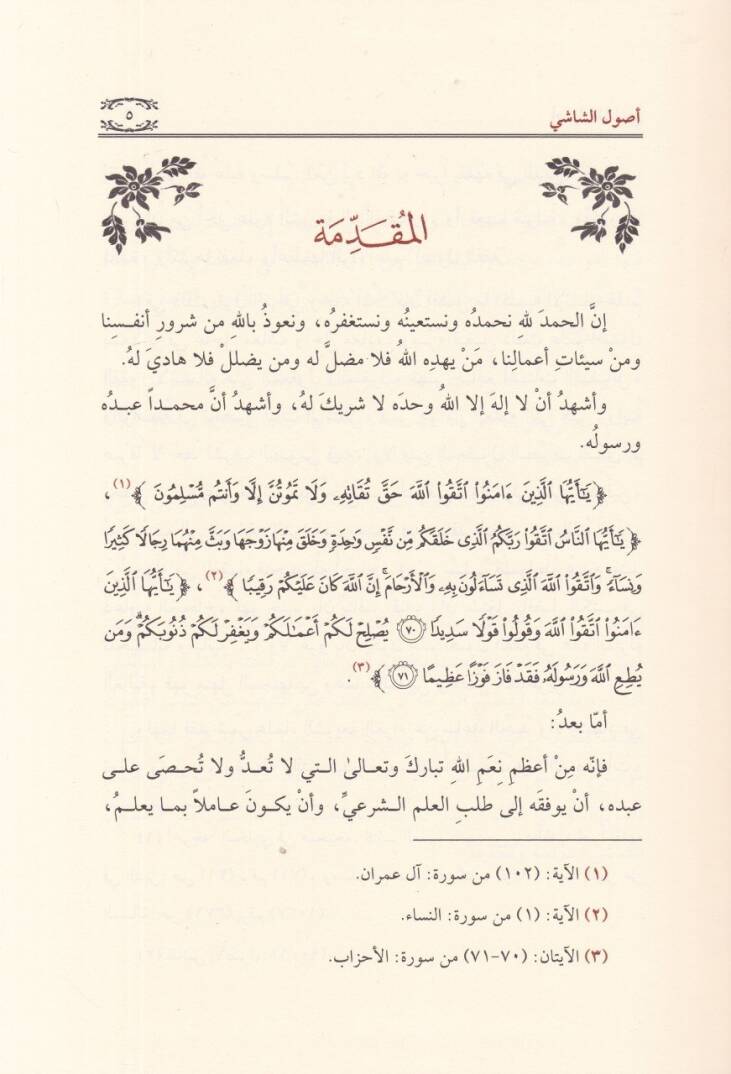 أصول الشاشي
٥
المُقَدِّمَة
إنَّ الحمدَ للهِ نحمدُه ونستعينُه ونستغفرُه، ونعوذُ باللهِ من شرورِ أنفسِنا
ومنْ سيئاتِ أعمالِنا، مَنْ يهدِه اللهُ فلا مضلَّ له ومن يضللْ فلا هاديَ لهُ.
وأشهدُ أنْ لا إلهَ إلا اللهُ وحدَه لا شريكَ لهُ، وأشهدُ أنَّ محمداً عبدُه
ورسولُه.
﴿يَٰٓأَيُّهَا ٱلَّذِينَ ءَامَنُوا۟ ٱتَّقُوا۟ ٱللَّهَ حَقَّ تُقَاتِهِۦ وَلَا تَمُوتُنَّ إِلَّا وَأَنتُم مُّسْلِمُونَ﴾(١)،
﴿يَٰٓأَيُّهَا ٱلنَّاسُ ٱتَّقُوا۟ رَبَّكُمُ ٱلَّذِى خَلَقَكُم مِّن نَّفْسٍ وَٰحِدَةٍ وَخَلَقَ مِنْهَا زَوْجَهَا وَبَثَّ مِنْهُمَا رِجَالًا كَثِيرًا
وَنِسَآءً ۚ وَٱتَّقُوا۟ ٱللَّهَ ٱلَّذِى تَسَآءَلُونَ بِهِۦ وَٱلْأَرْحَامَ ۚ إِنَّ ٱللَّهَ كَانَ عَلَيْكُمْ رَقِيبًا﴾(٢)، ﴿يَٰٓأَيُّهَا ٱلَّذِينَ
ءَامَنُوا۟ ٱتَّقُوا۟ ٱللَّهَ وَقُولُوا۟ قَوْلًا سَدِيدًا ۝٧٠ يُصْلِحْ لَكُمْ أَعْمَٰلَكُمْ وَيَغْفِرْ لَكُمْ ذُنُوبَكُمْ ۗ وَمَن
يُطِعِ ٱللَّهَ وَرَسُولَهُۥ فَقَدْ فَازَ فَوْزًا عَظِيمًا ۝٧١﴾(٣).
أمّا بعدُ:
فإنّه مِنْ أعظمِ نِعَمِ اللهِ تباركَ وتعالىٰ التي لا تُعدُّ ولا تُحصَى على
عبده، أنْ يوفقَه إلى طلبِ العلم الشرعيِّ، وأنْ يكونَ عاملاً بما يعلمُ،
(١) الآية: (١٠٢) من سورة: آل عمران.
(٢) الآية: (١) من سورة: النساء.
(٣) الآيتان: (٧٠-٧١) من سورة: الأحزاب.